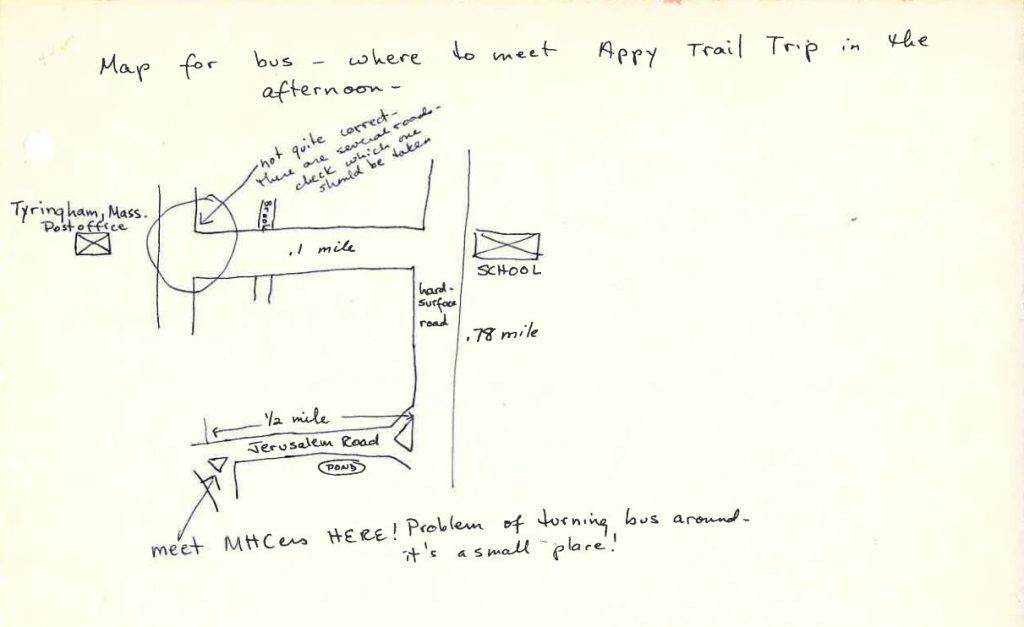 Map for bus - where to meet Appy Trail Trip in the
afternoon -
not quite correct -
there are several roads -
check which one
should be taken
Tyringham, Mass.
Post office
Brook
.1 mile
SCHOOL
hard-
surface
road
.78 mile
1/2 mile
Jerusalem Road
POND
meet MHCers HERE! Problem of turning bus around -
it's a small place!